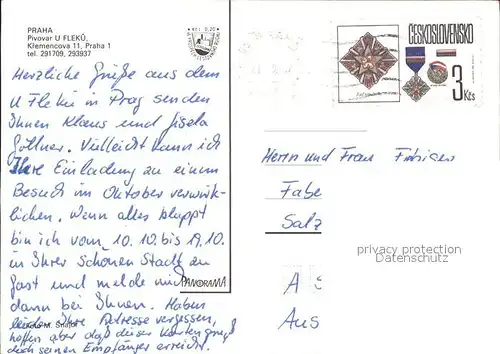 PRAHA
Pivovar U FLEKŮ,
Křemencova 11, Praha 1
tel. 291709, 293937
Herzliche Grüße aus dem
U Fleku in Prag senden
Ihnen Klaus und Gisela
Göllner. Vielleicht kann ich
Ihre Einladung zu einem
Besuch im Oktober verwirk-
lichen. Wenn alles klappt
bin ich vom 10.10. bis 19.10.
in Ihrer schönen Stadt zu
Gast und melde mich
dann bei Ihnen. Haben
leider Ihre Adresse vergessen,
hoffen aber daß dieser Kartengruß
doch seinen Empfänger erreicht.
PANORAMA
ČESKOSLOVENSKO
3 Kčs
Herrn und Frau
Fabe
Salz
A
Aus
privacy protection
Datenschutz